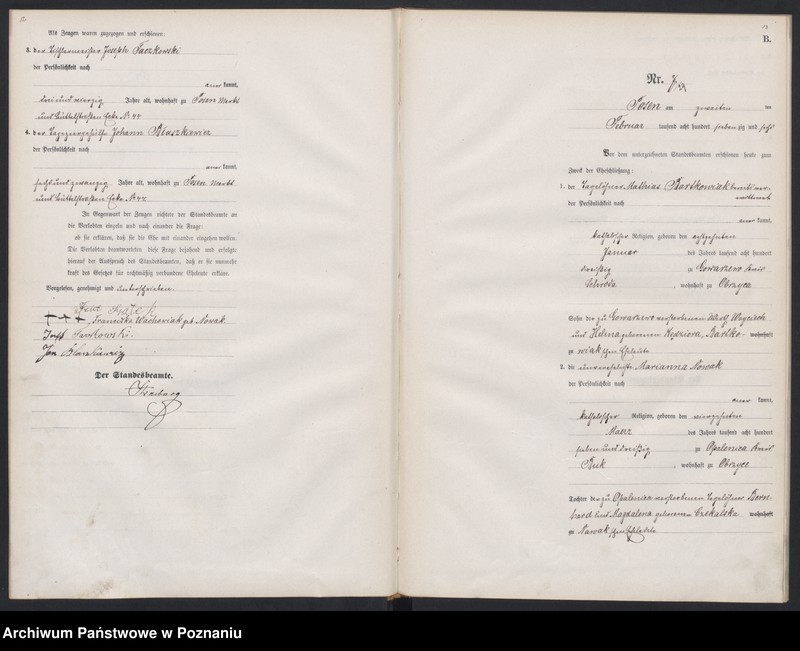 Als Zeugen waren zugezogen und erschienen:
3. der Tischlermeister Joseph Taczkowski
der Persönlichkeit nach
kannt,
drei und vierzig Jahre alt, wohnhaft zu Posen Markt
und Büttelstraßen Ecke № 44
4. der Johann Blaszkiewicz
der Persönlichkeit nach
kannt,
sechs und zwanzig Jahre alt, wohnhaft zu Posen Markt
und Büttelstraßen Ecke № 44
In Gegenwart der Zeugen richtete der Standesbeamte an
die Verlobten einzeln und nach einander die Frage:
ob sie erklären, daß sie die Ehe mit einander eingehen wollen.
Die Verlobten beantworteten diese Frage bejahend und erfolgte
hierauf der Ausspruch des Standesbeamten, daß er sie nunmehr
kraft des Gesetzes für rechtmäßig verbundene Eheleute erkläre.
Vorgelesen, genehmigt und unterschrieben.
+++ Franciska Wachowiak geb. Nowak
Taczkowski.
Jan Blaszkiewicz
Der Standesbeamte.
B.
Nr.
Posen am zweiten
Februar tausend acht hundert sieben zig und sechs
Vor dem unterzeichneten Standesbeamten erschienen heute zum
Zweck der Eheschließung:
1. der Tagelöhner Mathias Bartkowiak
der Persönlichkeit nach
kannt,
katholischer Religion, geboren den achtzehnten
Januar des Jahres tausend acht hundert
dreißig zu Gowarzewo Kreis
Schroda, wohnhaft zu Obrzyca
Sohn der zu Gowarzewo verstorbenen Woyciech
und Helena geborenen Kędziora, Bartko- wohnhaft
zu wiakschen Eheleute
2. die unverehelichte Marianna Nowak
der Persönlichkeit nach
kannt,
katholischer Religion, geboren den vierzehnten
Maerz des Jahres tausend acht hundert
sieben und dreißig zu Opalenica Kreis
Buk, wohnhaft zu Obrzyca
Tochter der zu Opalenica verstorbenen Tagelöhner Bern-
hard und Magdalena geborenen wohnhaft
zu Nowakschen Eheleute
Archiwum Państwowe w Poznaniu